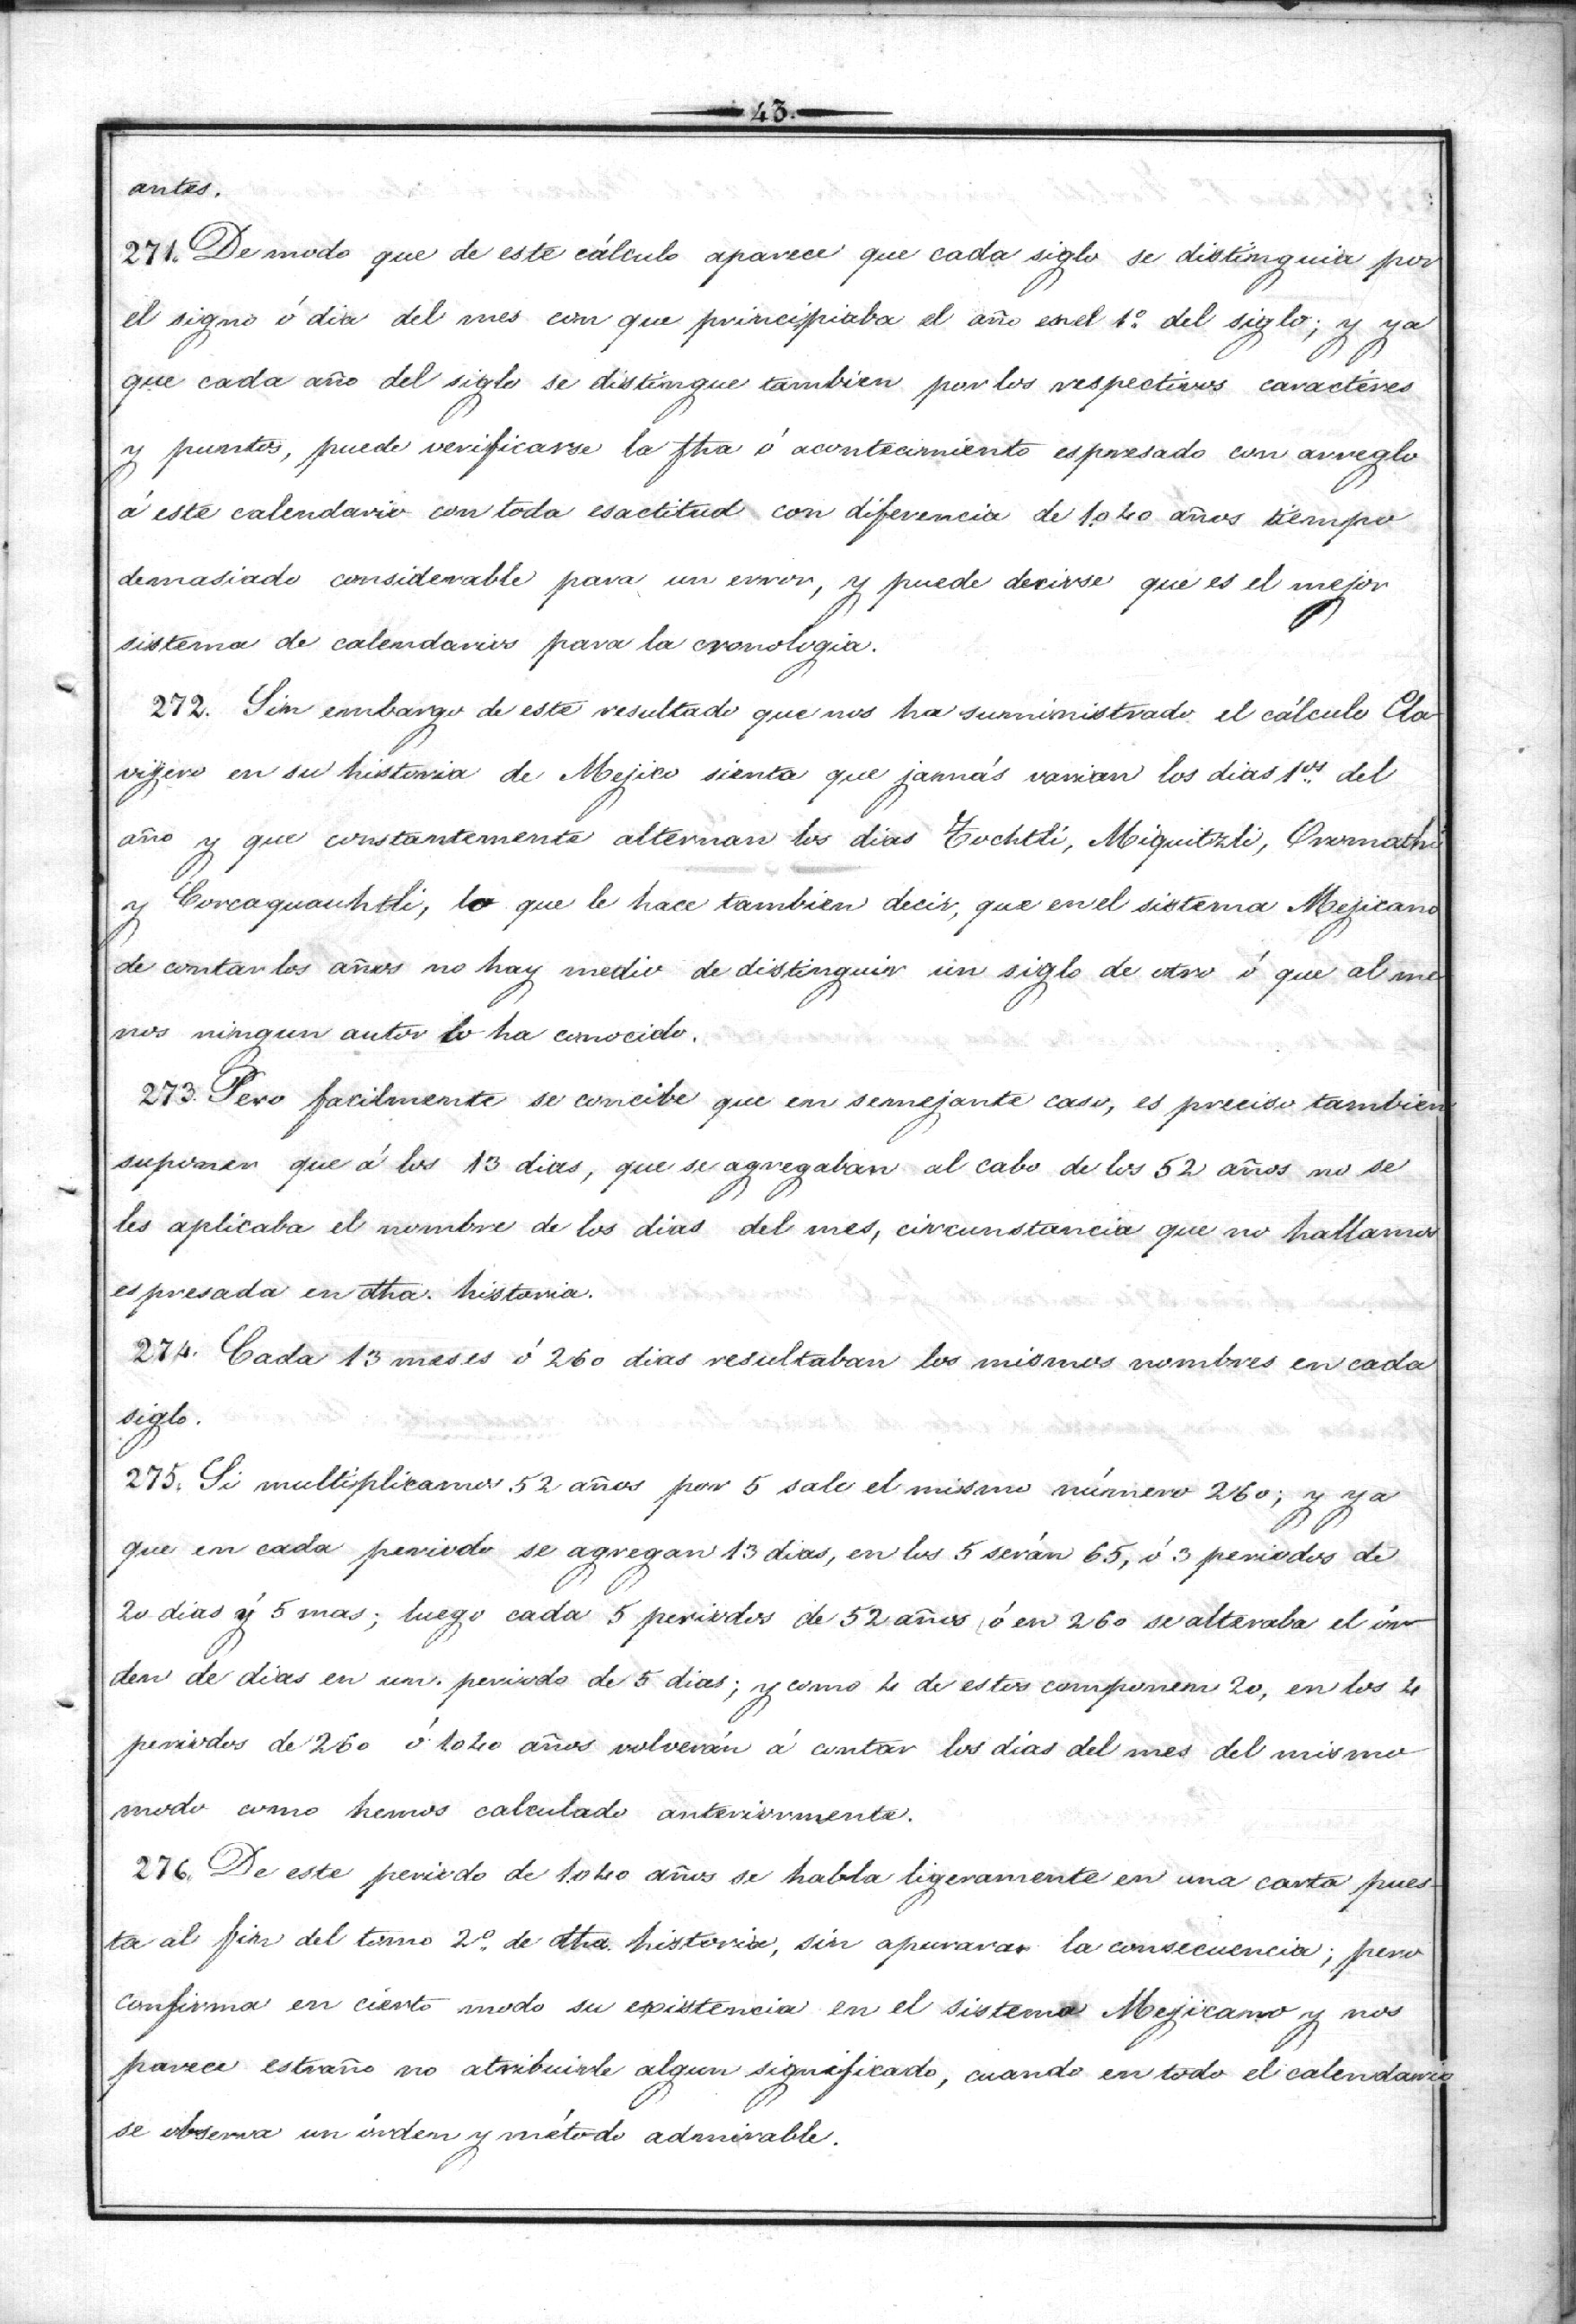 43.
antes.
271. De modo que de este cálculo aparece que cada siglo se distinguia por
el signo ó dia del mes con que principiaba el año en el 1º del siglo; y ya
que cada año del siglo se distingue tambien por los respectivos caractéres
y puntos, puede verificarse la fha ó acontecimiento espresado con arreglo
á este calendario con toda esactitud con diferencia de 1.040 años tiempo
demasiado considerable para un error, y puede decirse que es el mejor
sistema de calendarios para la cronologia.
272. Sin embargo de este resultado que nos ha suministrado el cálculo Cla-
vijero en su historia de Mejico sienta que jamás varian los dias 1os del
año y que constantemente alternan los dias Tochtli, Miquitzli, Ozomatli
y Corcaquauhtli, lo que le hace tambien decir, que en el sistema Mejicano
de contar los años no hay medio de distinguir un siglo de otro ó que al me-
nos ningun autor lo ha conocido.
273. Pero facilmente se concibe que en semejante caso, es preciso tambien
suponer que á los 13 dias, que se agregaban al cabo de los 52 años no se
les aplicaba el nombre de los dias del mes, circunstancia que no hallamos
espresada en dha. historia.
274. Cada 13 meses ó 260 dias resultaban los mismos nombres en cada
siglo.
275. Si multiplicamos 52 años por 5 sale el mismo número 260; y ya
que en cada periodo se agregan 13 dias, en los 5 serán 65, ó 3 periodos de
20 dias y 5 mas; luego cada 5 periodos de 52 años ó en 260 se alteraba el ór-
den de dias en un periodo de 5 dias; y como 4 de estos componen 20, en los 4
periodos de 260 ó 1040 años volverán á contar los dias del mes del mismo
modo como hemos calculado anteriormente.
276. De este periodo de 1.040 años se habla ligeramente en una carta pues-
ta al fin del tomo 2º de dha. historia, sin apurarar la consecuencia; pero
confirma en cierto modo su existencia en el sistema Mejicano y nos
parece estraño no atribuirle algun significado, cuando en todo el calendario
se observa un órden y método admirable.